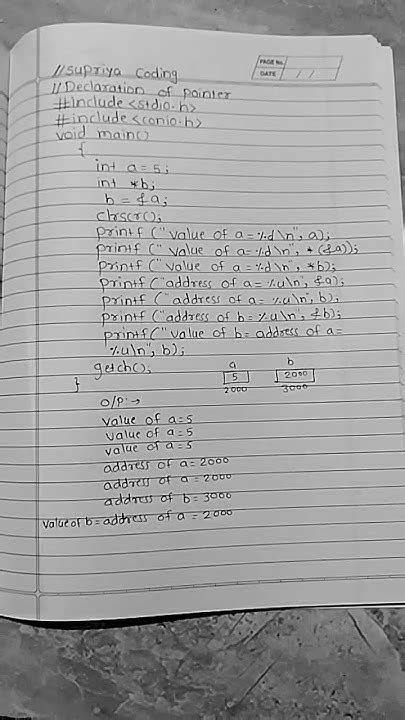 PAGE No.
DATE / /
//Supriya Coding
//Declaration of pointer
#include <stdio.h>
#include <conio.h>
void main()
{
int a=5;
int *b;
b = &a;
clrscr();
printf ("value of a=%d\n", a);
printf (" value of a=%d\n", *(&a));
printf ("value of a=%d\n", *b);
printf ("address of a= %u\n", &a);
printf (" address of a= %u\n", b);
printf ("address of b= %u\n", &b);
printf ("value of b= address of a=
%u\n", b);
getch();
}
a b
5 2000
2000 3000
O/P:→
value of a=5
value of a=5
value of a=5
address of a=2000
address of a = 2000
address of b = 3000
value of b = address of a = 2000